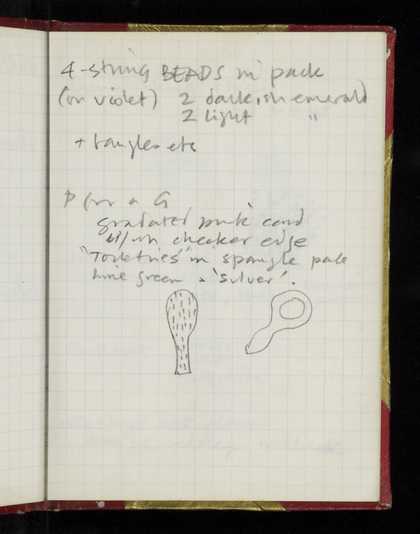 4-string BEADS in pack
(on violet) 2 darkish emerald
2 light "
+ tangles etc
P for a G
graduated pink card
w/ checker edge
"Toiletries" in spangle pack
lime green + 'silver'.